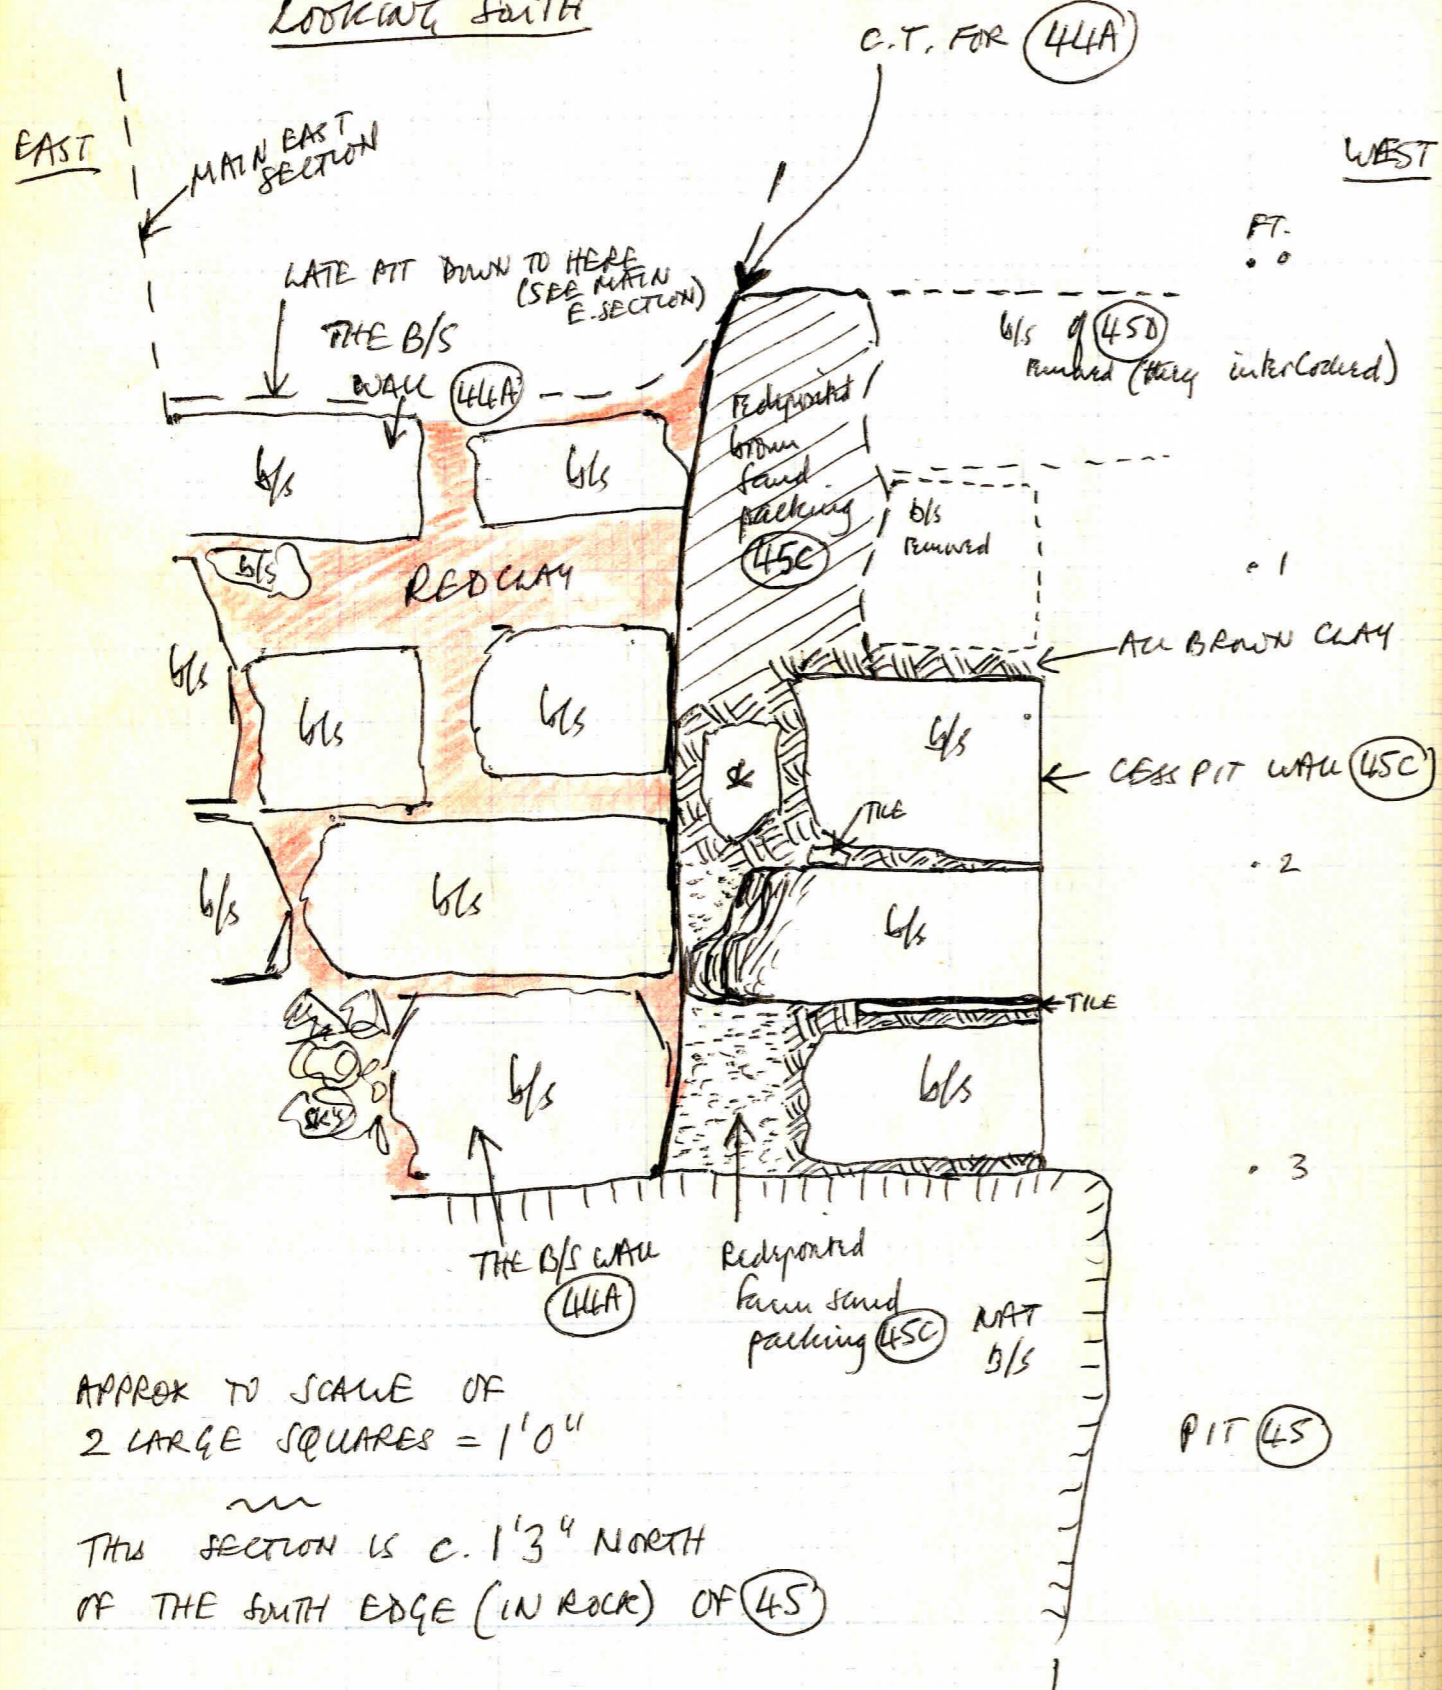 LOOKING SOUTH
C.T. FOR 44A
EAST
MAIN EAST
SECTION
WEST
FT.
0
LATE PIT DOWN TO HERE
(SEE MAIN
E. SECTION)
THE B/S
WALL 44A
b/s of 45D
removed (they interlocked)
b/s
b/s
redeposited
brown
sand
packing
45C
b/s
removed
b/s
RED CLAY
1
ALL BROWN CLAY
b/s
b/s
b/s
b/s
sk
CESS PIT WALL 45C
TILE
2
b/s
b/s
b/s
TILE
b/s
b/s
sk's
3
THE B/S WALL
44A
Redeposited
sand
packing 45C
NAT
B/S
APPROX TO SCALE OF
2 LARGE SQUARES = 1'0"
PIT 45
THIS SECTION IS c. 1'3" NORTH
OF THE SOUTH EDGE (IN ROCK) OF 45